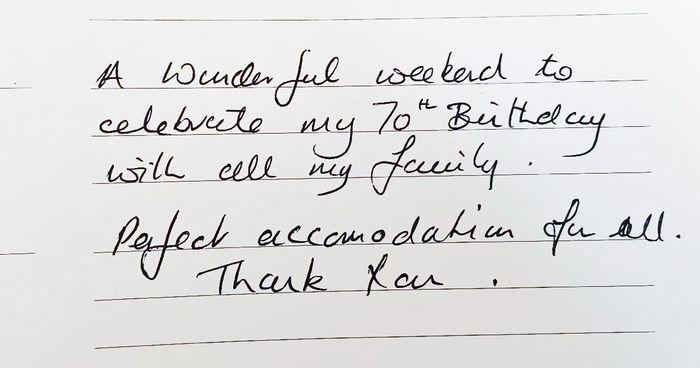 A wonderful weekend to
celebrate my 70th Birthday
with all my family.
Perfect accomodation for all.
Thank You.